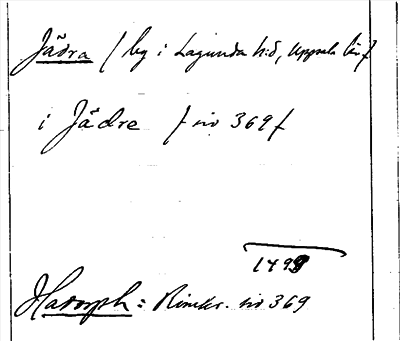 Jädra / by i Lagunda hd, Uppsala län /
i Jädre / nr 369 /
1499
Hadorph: Rimkr. nr 369